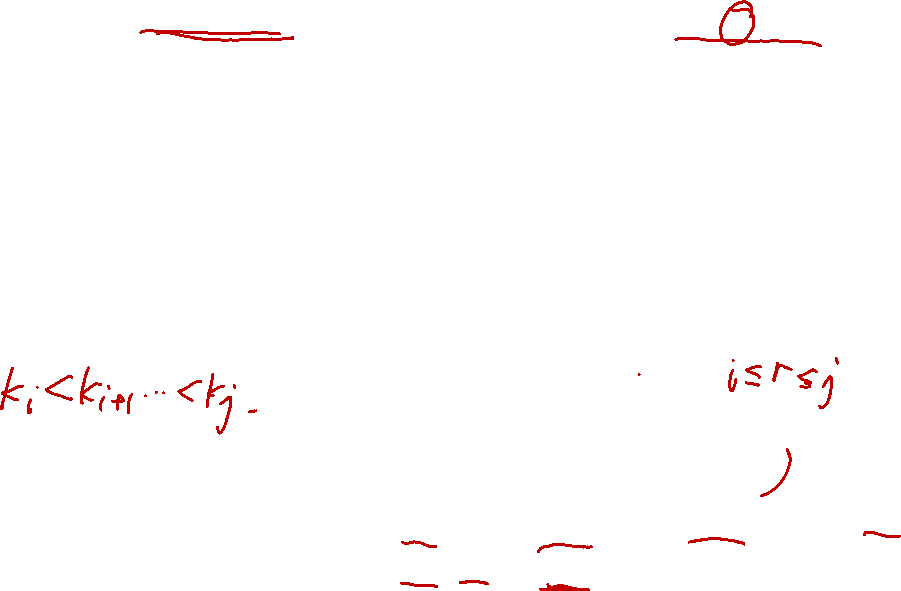 k_i < k_{i+1} ... < k_j
i ≤ r ≤ j